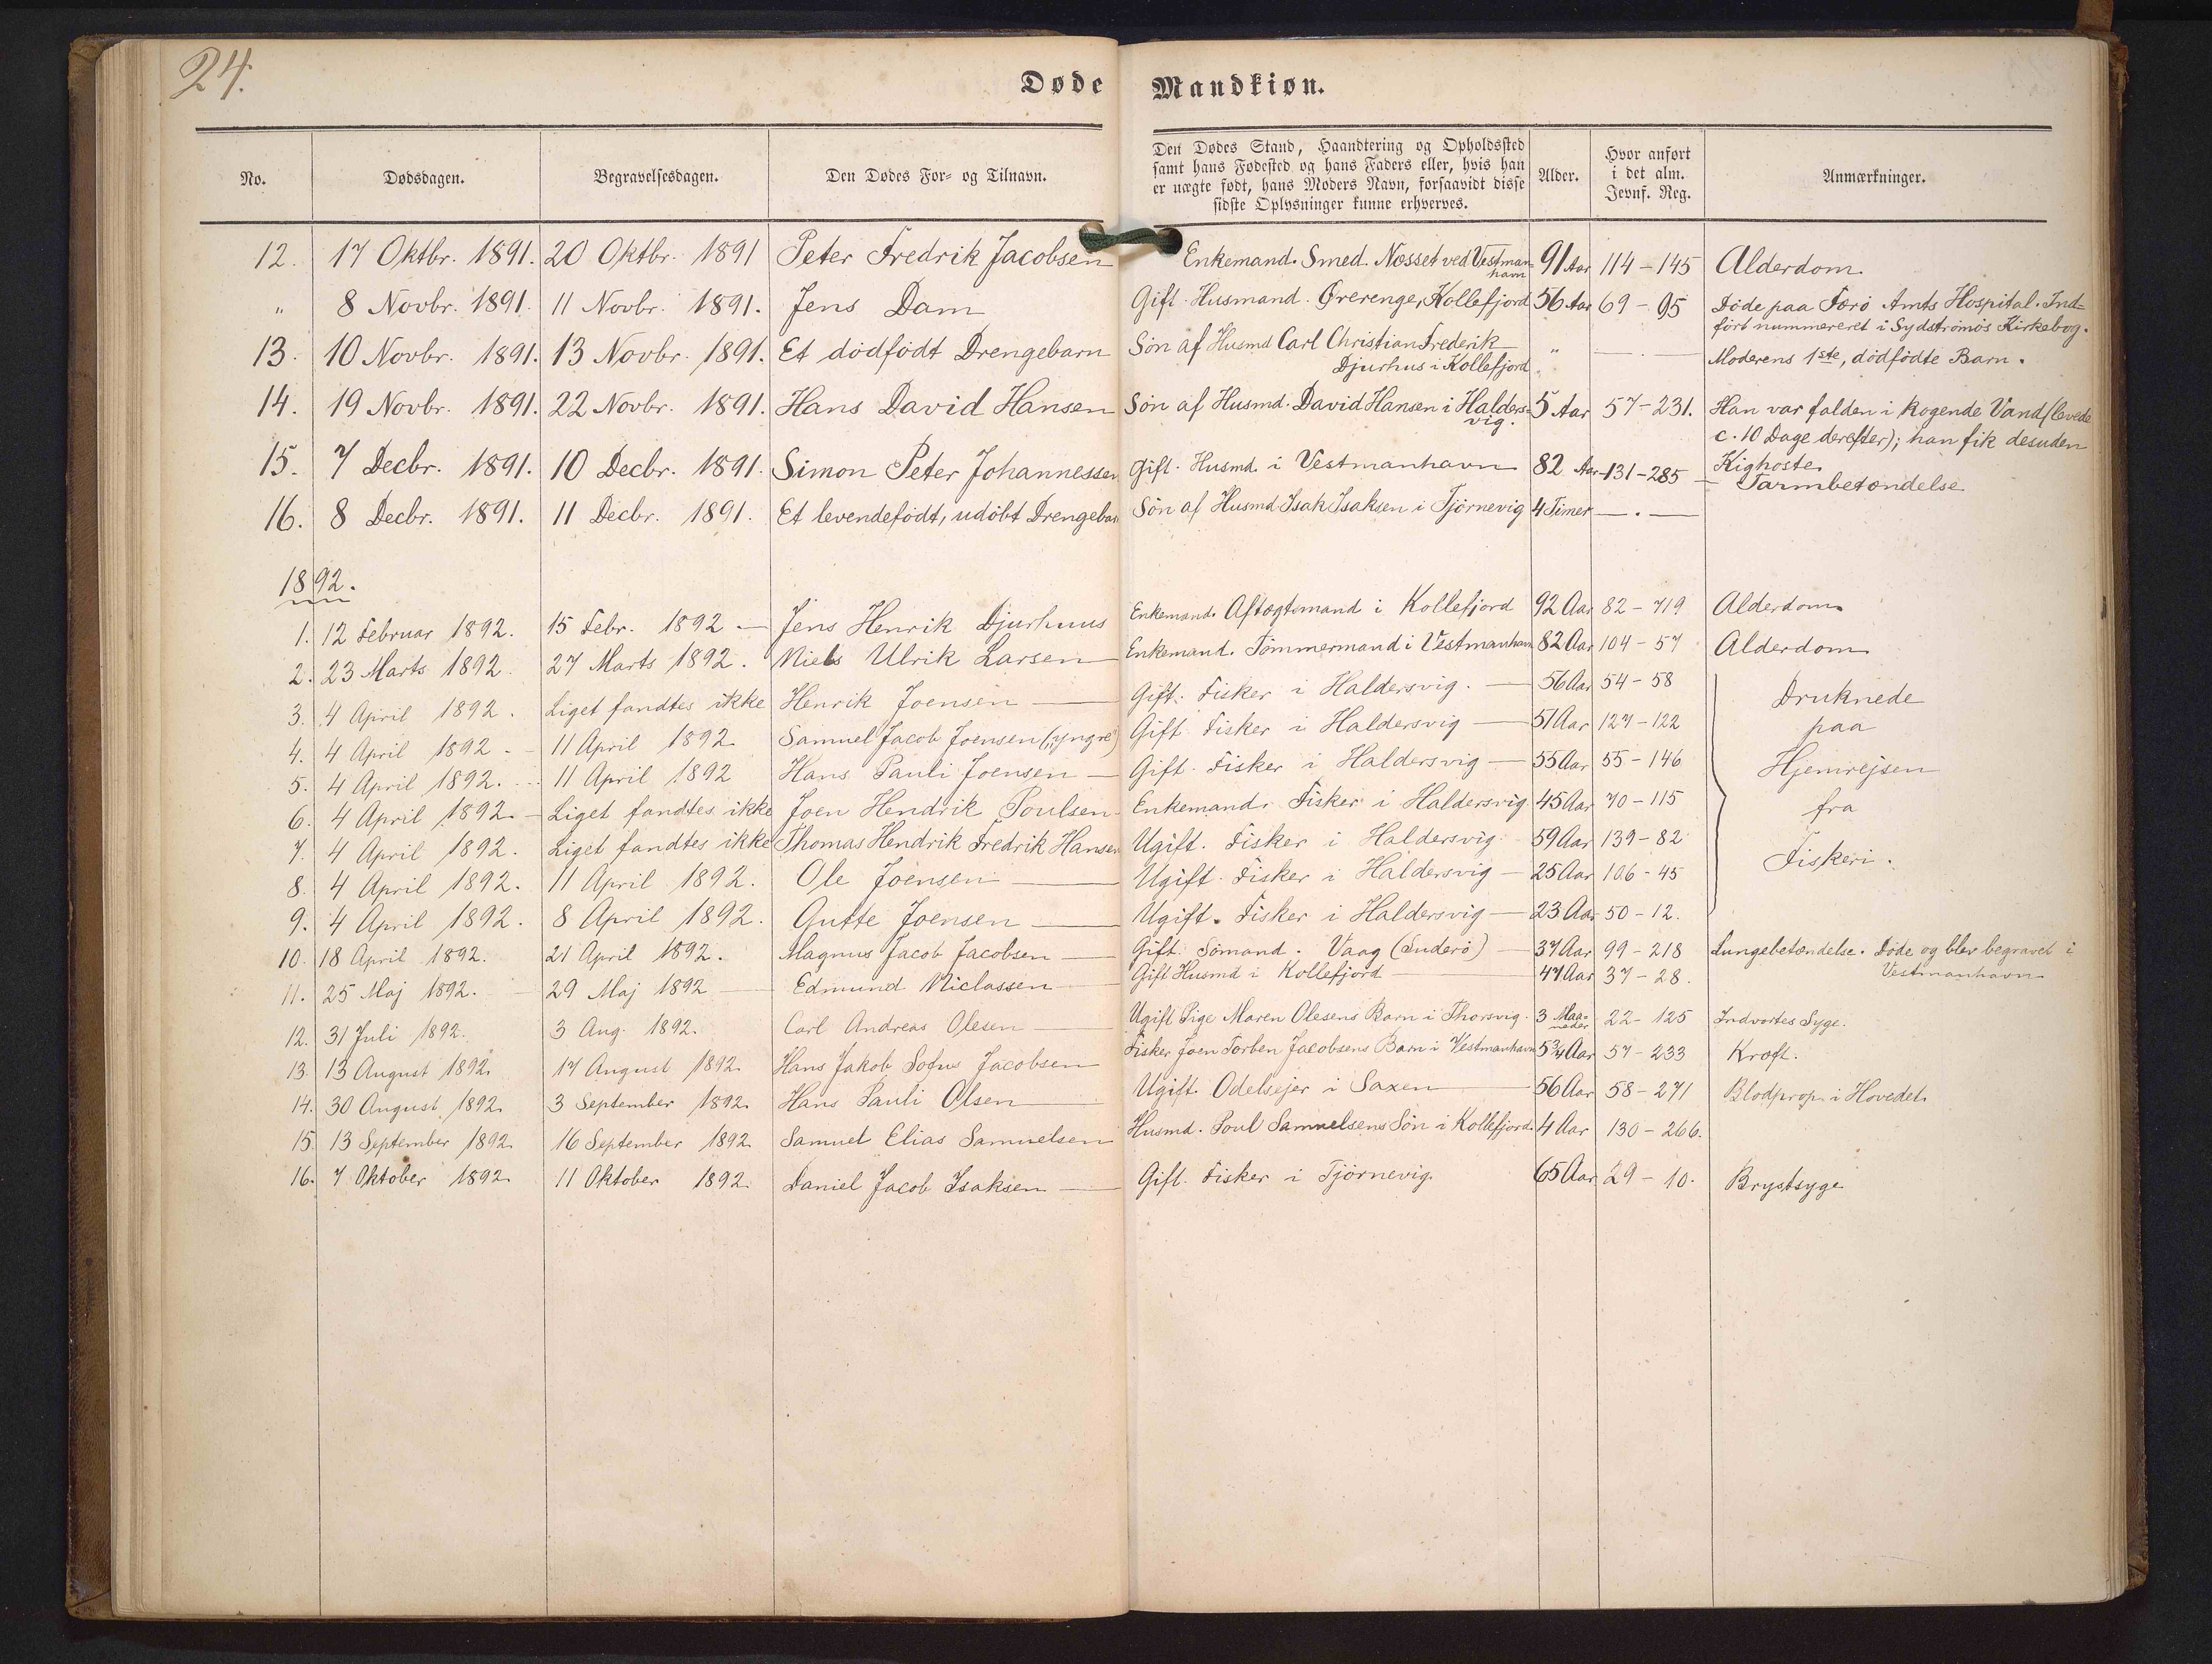 24.
Døde Mandkiøn.
No. Dødsdagen. Begravelsesdagen. Den Dødes For- og Tilnavn. Den Dødes Stand, Haandtering og Opholdssted samt hans Fødested og hans Faders eller, hvis han er uægte født, hans Moders Navn, forsaavidt disse sidste Oplysninger kunne erhverves. Alder. Hvor anført i det alm. Jevnf. Reg. Anmærkninger.
12. 17 Oktbr. 1891. 20 Oktbr. 1891 Peter Fredrik Jacobsen Enkemand. Smed. Nesset ved Vestmanhavn 91 Aar 114-145 Alderdom.
" 8 Novbr. 1891. 11 Novbr. 1891. Jens Dam Gift. Husmand. Ørerenge, Kollefjord 56 Aar 69-95 Døde paa Færø Amts Hospital. Ind-
ført nummereret i Sydstrømøs Kirkebog.
13. 10 Novbr. 1891. 13 Novbr. 1891. Et dødfødt Drengebarn Søn af Husmd Carl Christian Frederik
Djurhus i Kollefjord " — . — Moderens 1ste, dødfødte Barn.
14. 19 Novbr. 1891. 22 Novbr. 1891. Hans David Hansen Søn af Husmd. David Hansen i Halders-
vig. 5 Aar 57-231. Han var falden i kogende Vand (levede
c. 10 Dage derefter); han fik desuden
Kighoste.
15. 7 Decbr. 1891. 10 Decbr. 1891. Simon Peter Johannessen Gift. Husmd. i Vestmanhavn 82 Aar 131-285 — Tarmbetændelse
16. 8 Decbr. 1891. 11 Decbr. 1891. Et levendefødt, udøbt Drengebarn Søn af Husmd Isak Isaksen i Tjørnevig 4 Timer — . —
1892.
1. 12 Februar 1892. 15 Febr. 1892 — Jens Henrik Djurhuus Enkemand. Aftægtsmand i Kollefjord 92 Aar 82-719 Alderdom
2. 23 Marts 1892. 27 Marts 1892. Niels Ulrik Larsen Enkemand. Tømmermand i Vestmanhavn 82 Aar 104-57 Alderdom
3. 4 April 1892. Liget fandtes ikke Henrik Joensen Gift. Fisker i Haldersvig. 56 Aar 54-58 Druknede
4. 4 April 1892 - 11 April 1892 Samuel Jacob Joensen ("yngre") Gift Fisker i Haldersvig 51 Aar 127-122 paa
5. 4 April 1892. 11 April 1892 Hans Pauli Joensen Gift. Fisker i Haldersvig 55 Aar 55-146 Hjemrejsen
6. 4 April 1892. Liget fandtes ikke Joen Hendrik Poulsen Enkemand. Fisker i Haldersvig 45 Aar 70-115 fra
7. 4 April 1892. Liget fandtes ikke Thomas Hendrik Fredrik Hansen Ugift. Fisker i Haldersvig 59 Aar 139-82 Fiskeri.
8. 4 April 1892. 11 April 1892. Ole Joensen Ugift. Fisker i Haldersvig 25 Aar 106-45
9. 4 April 1892. 8 April 1892. Gutte Joensen Ugift. Fisker i Haldersvig 23 Aar 50-12.
10. 18 April 1892. 21 April 1892. Magnus Jacob Jacobsen Gift. Sømand. Vaag (Suderø) 37 Aar 99-218 Lungebetændelse. Døde og blev begravet i
Vestmanhavn
11. 25 Maj 1892. 29 Maj 1892 Edmund Niclassen Gift Husmd i Kollefjord 47 Aar 37-28.
12. 31 Juli 1892. 3 Aug. 1892. Carl Andreas Olesen Ugift Pige Maren Olesens Barn i Thorsvig. 3 Maaneder 22-125 Indvortes Syge.
13. 13 August 1892. 17 August 1892. Hans Jakob Sofus Jacobsen Fisker Joen Torben Jacobsens Barn i Vestmanhavn 5 3/4 Aar 57-233 Kræft.
14. 30 August 1892. 3 September 1892. Hans Pauli Olsen Ugift. Odelsejer i Saxen 56 Aar 58-271 Blodprop i Hovedet.
15. 13 September 1892. 16 September 1892. Samuel Elias Samuelsen Husmd. Poul Samuelsens Søn i Kollefjord. 4 Aar 130-266.
16. 7 Oktober 1892. 11 Oktober 1892. Daniel Jacob Isaksen Gift. Fisker i Tjørnevig. 65 Aar 29-10. Brystsyge